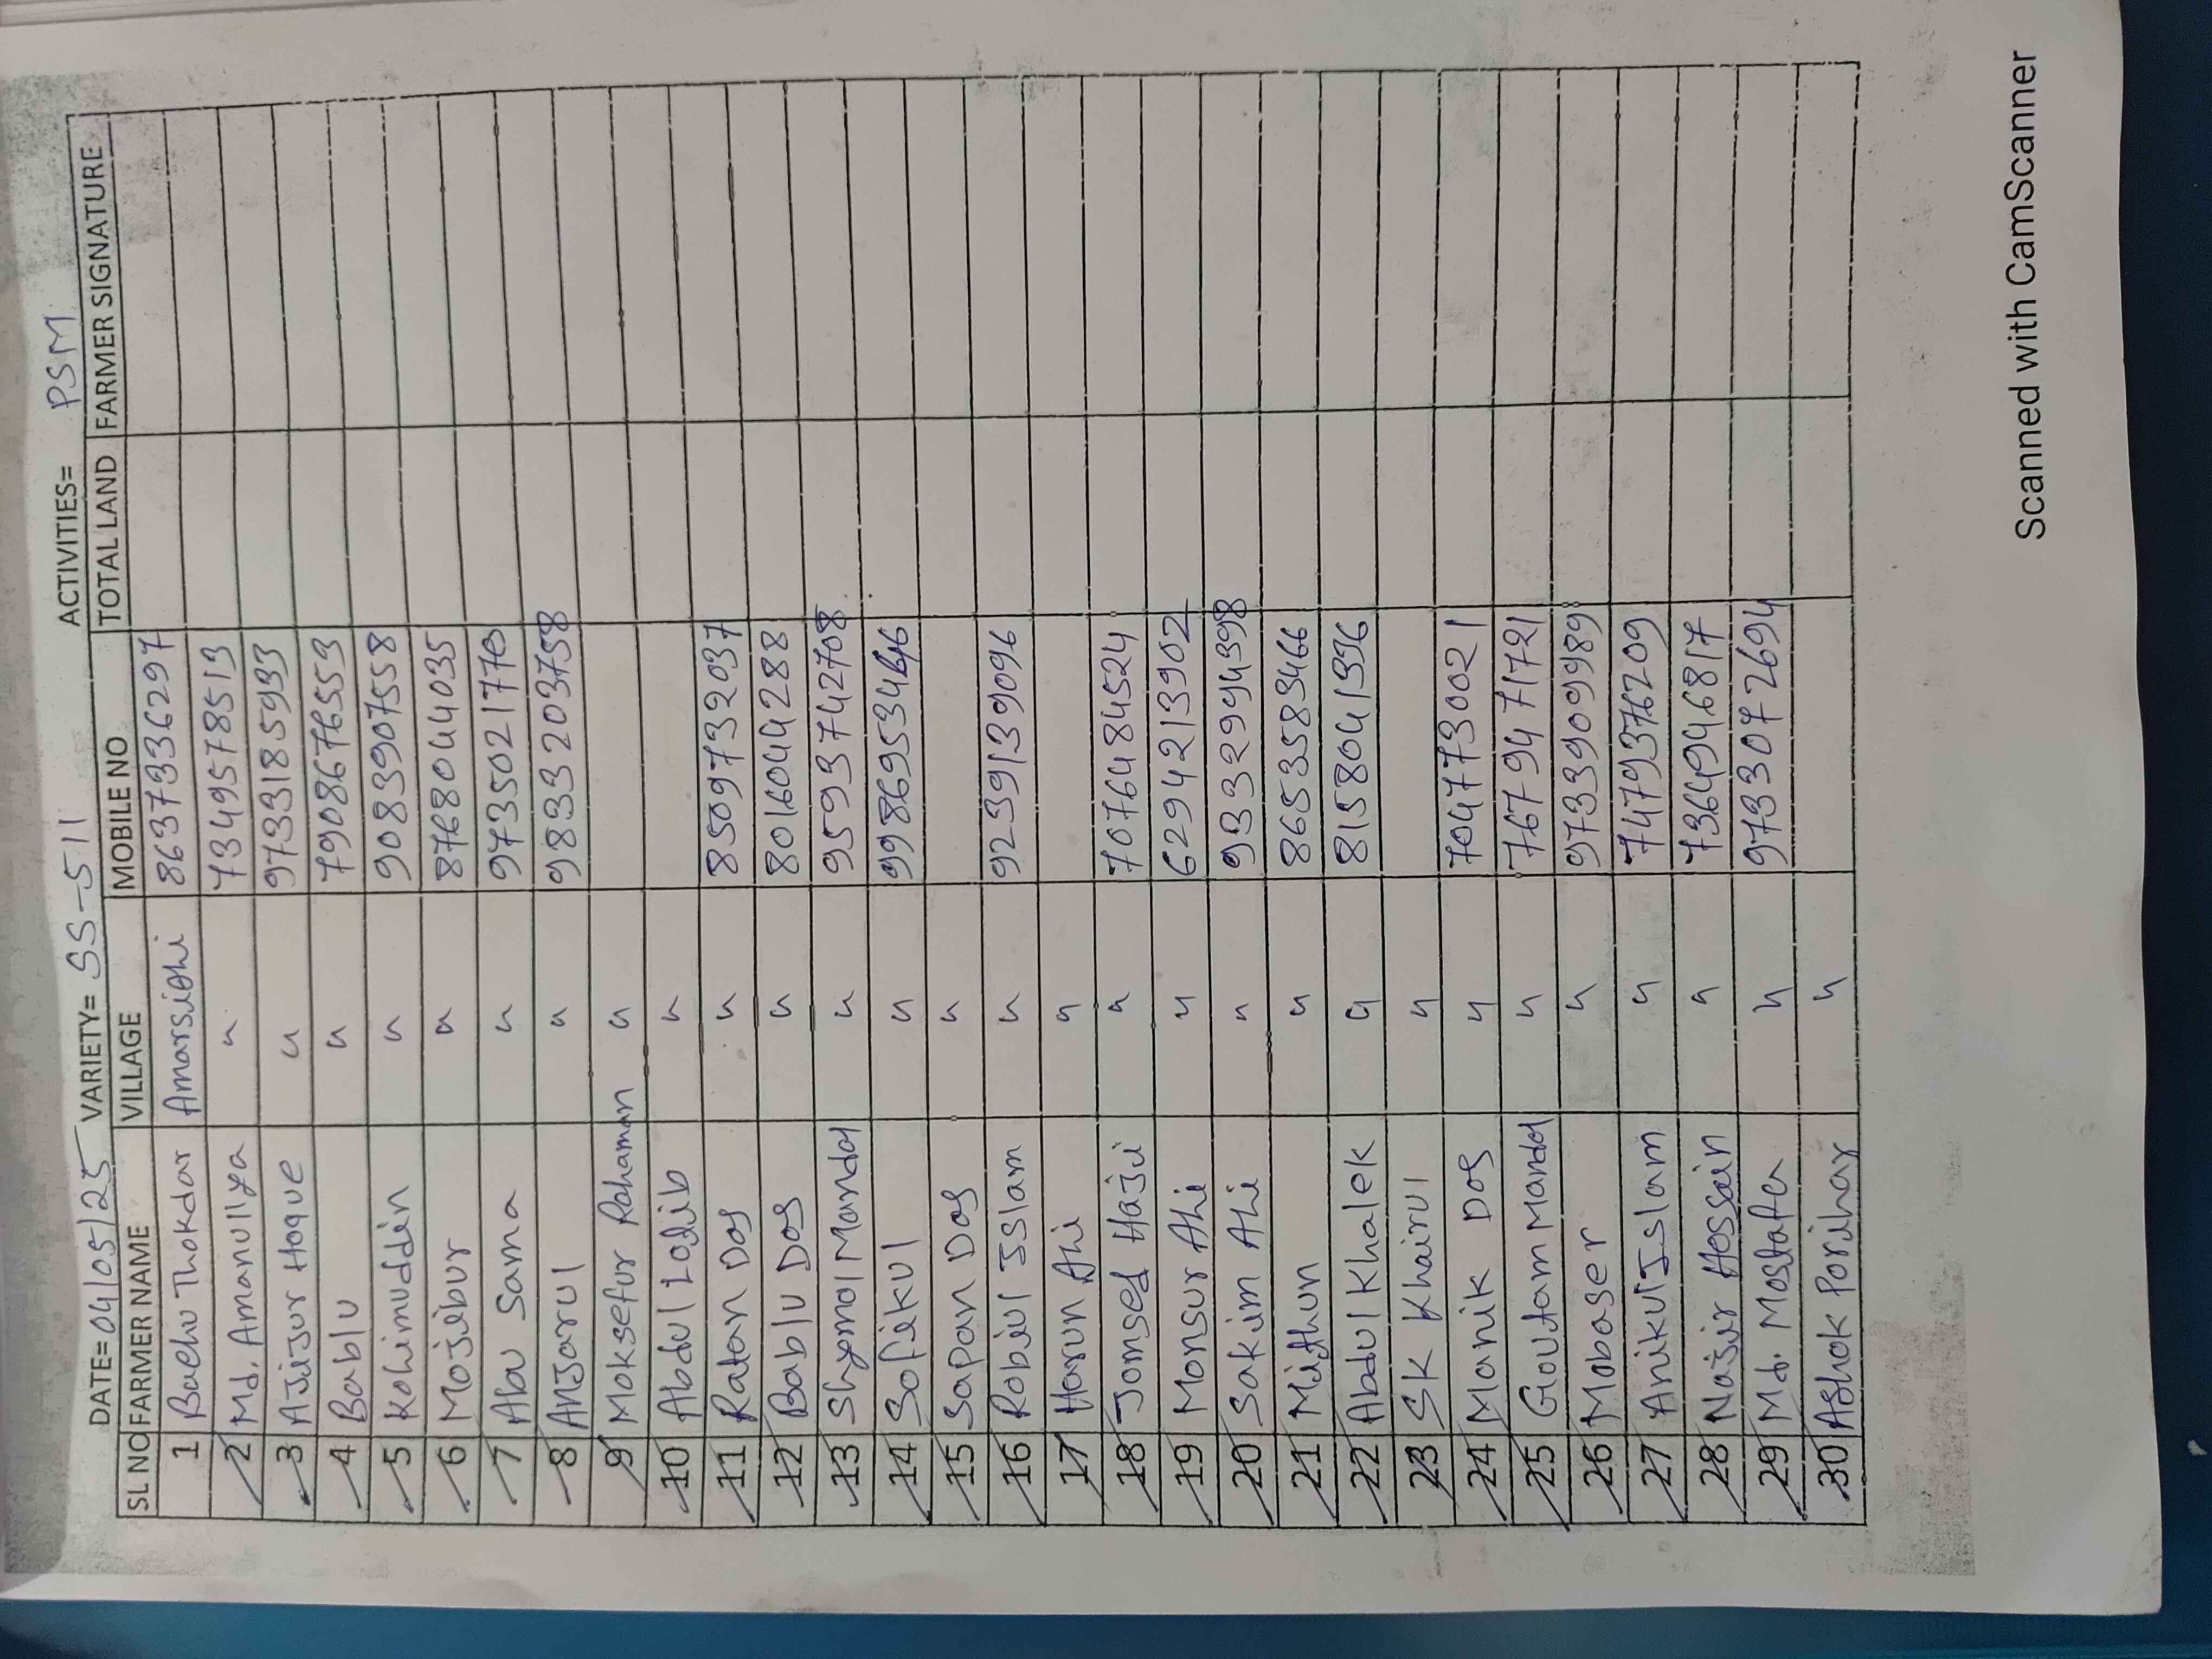 DATE= 04/05/25 VARIETY= SS-511 ACTIVITIES= PSM
SL NO FARMER NAME VILLAGE MOBILE NO TOTAL LAND FARMER SIGNATURE
1 Bachu Thokdar Amarsithi 8637336297
2 Md. Amanullya " 7349578513
3 AJiJur Hoque " 9733185933
4 Bablu " 7908676553
5 Kohimuddin " 9083907558
6 Mojibur " 8768044035
7 Abu Sama " 9735021770
8 ANJarul " 9833203758
9 Moksefur Rahaman "
10 Abdul Lodib "
11 Ratan Das " 8509732037
12 Bablu Das " 8016044288
13 Shyamal Mandal " 9593742708
14 Sofikul " 9986953446
15 Sapan Das "
16 Robiul Islam " 9239139096
17 Harun Ahi "
18 Jomsed Haji " 7076484524
19 Monsur Ahi " 6294213902
20 Sakim Ahi " 9332994398
21 Mithun " 8653583466
22 Abdul Khalek " 8158041396
23 SK Khairul "
24 Manik Das " 7047730021
25 Goutam Mandal " 7679471721
26 Mobaser " 9733909989
27 Anikul Islam " 7479376209
28 Najir Hossain " 7364946817
29 Md. Mostafa " 9733072694
30 Ashok Porihar "
Scanned with CamScanner